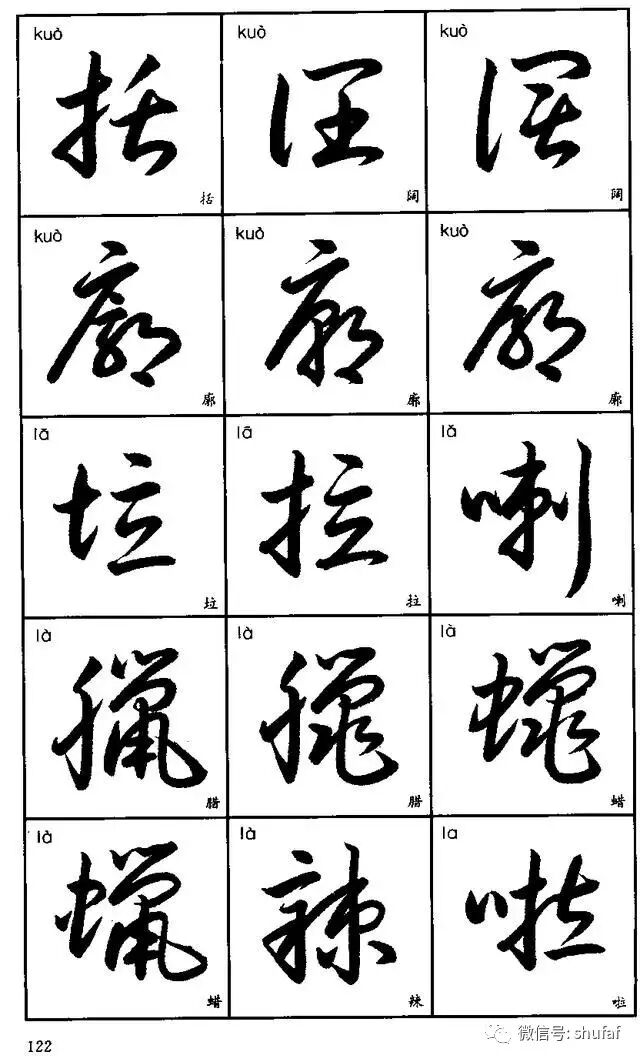 kuò kuò kuò
括 䦢 阔
括 阔 阔
kuò kuò kuò
廓 廓 廓
廓 廓 廓
lā lā lǎ
垃 拉 喇
垃 拉 喇
là là là
臘 臘 蠟
腊 腊 蜡
là là la
蠟 辣 啦
蜡 辣 啦
122
微信号: shufaf